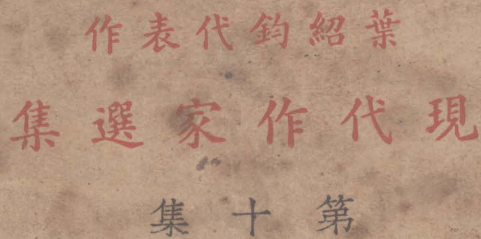 葉紹鈞代表作
現代作家選集
第十集